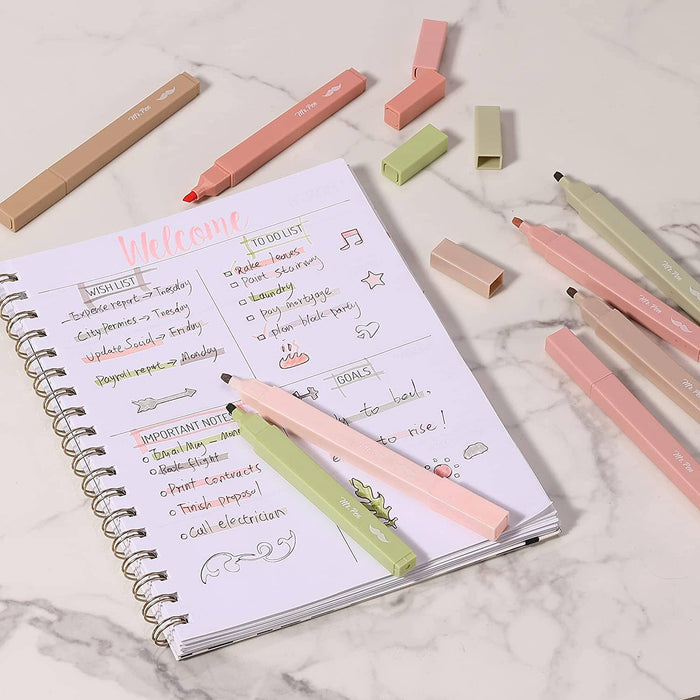 Mr. Pen
Mr. Pen
Welcome
WISH LIST
Expense report → Tuesday
City Permies → Tuesday
Update Social → Friday
Payroll report → Monday
TO DO LIST
Rake leaves
Paint stairway
Laundry
pay mortgage
plan block party
IMPORTANT NOTE
Email Mug - Mon
Book flight
Print contracts
Finish proposal
Call electrician
GOALS
to bed,
to rise!
Mr. Pen
Mr. Pen
Mr. Pen
Mr. Pen
Mr. Pen